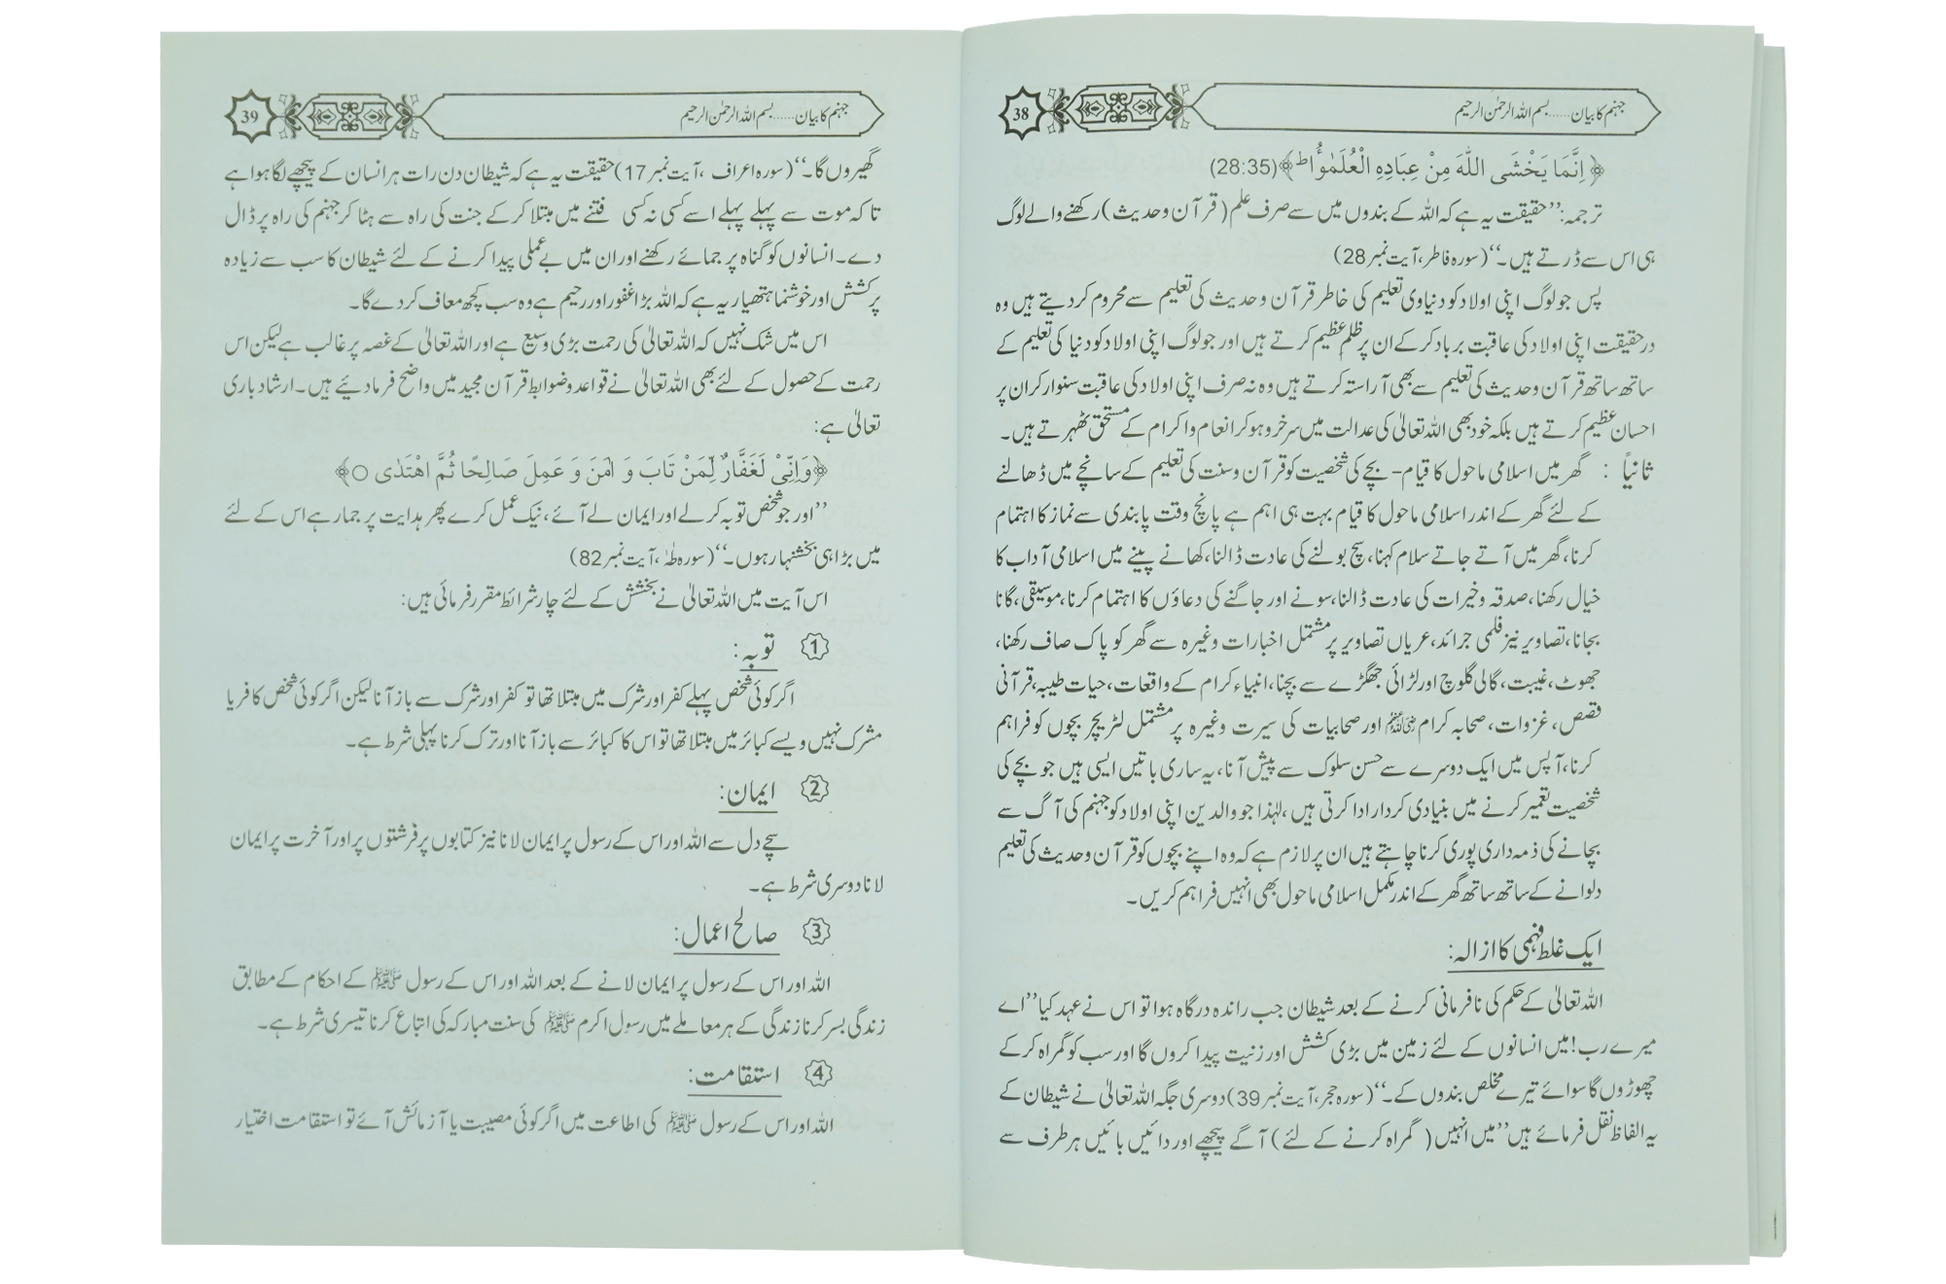 جہنم کا بیان......بسم اللہ الرحمٰن الرحیم
38
﴿اِنَّمَا یَخْشَی اللّٰہَ مِنْ عِبَادِہِ الْعُلَمٰٓؤُاط﴾(28:35)
ترجمہ:’’حقیقت یہ ہے کہ اللہ کے بندوں میں سے صرف علم (قرآن وحدیث) رکھنے والے لوگ
ہی اس سے ڈرتے ہیں۔‘‘ (سورہ فاطر، آیت نمبر 28)
پس جو لوگ اپنی اولاد کو دنیاوی تعلیم کی خاطر قرآن وحدیث کی تعلیم سے محروم کردیتے ہیں وہ
درحقیقت اپنی اولاد کی عاقبت برباد کرکے ان پر ظلم عظیم کرتے ہیں اور جو لوگ اپنی اولاد کو دنیا کی تعلیم کے
ساتھ ساتھ قرآن وحدیث کی تعلیم سے بھی آراستہ کرتے ہیں وہ نہ صرف اپنی اولاد کی عاقبت سنوار کر ان پر
احسان عظیم کرتے ہیں بلکہ خود بھی اللہ تعالیٰ کی عدالت میں سرخرو ہوکر انعام واکرام کے مستحق ٹھہرتے ہیں۔
ثانیاً : گھر میں اسلامی ماحول کا قیام- بچے کی شخصیت کو قرآن وسنت کی تعلیم کے سانچے میں ڈھالنے
کے لئے گھر کے اندر اسلامی ماحول کا قیام بہت ہی اہم ہے پانچ وقت پابندی سے نماز کا اہتمام
کرنا، گھر میں آتے جاتے سلام کہنا، سچ بولنے کی عادت ڈالنا، کھانے پینے میں اسلامی آداب کا
خیال رکھنا، صدقہ وخیرات کی عادت ڈالنا، سونے اور جاگنے کی دعاؤں کا اہتمام کرنا، موسیقی، گانا
بجانا، تصاویر نیز فلمی جرائد، عریاں تصاویر پر مشتمل اخبارات وغیرہ سے گھر کو پاک صاف رکھنا،
جھوٹ، غیبت، گالی گلوچ اور لڑائی جھگڑے سے بچنا، انبیاء کرام کے واقعات، حیات طیبہ، قرآنی
قصص، غزوات، صحابہ کرام ﷺ اور صحابیات کی سیرت وغیرہ پر مشتمل لٹریچر بچوں کو فراہم
کرنا، آپس میں ایک دوسرے سے حسن سلوک سے پیش آنا، یہ ساری باتیں ایسی ہیں جو بچے کی
شخصیت تعمیر کرنے میں بنیادی کردار ادا کرتی ہیں، لہٰذا جو والدین اپنی اولاد کو جہنم کی آگ سے
بچانے کی ذمہ داری پوری کرنا چاہتے ہیں ان پر لازم ہے کہ وہ اپنے بچوں کو قرآن وحدیث کی تعلیم
دلوانے کے ساتھ ساتھ گھر کے اندر مکمل اسلامی ماحول بھی انہیں فراہم کریں۔
ایک غلط فہمی کا ازالہ:
اللہ تعالیٰ کے حکم کی نافرمانی کرنے کے بعد شیطان جب راندہ درگاہ ہوا تو اس نے عہد کیا’’ اے
میرے رب! میں انسانوں کے لئے زمین میں بڑی کشش اور زنیت پیدا کروں گا اور سب کو گمراہ کرکے
چھوڑوں گا سوائے تیرے مخلص بندوں کے۔‘‘ (سورہ حجر، آیت نمبر 39) دوسری جگہ اللہ تعالیٰ نے شیطان کے
یہ الفاظ نقل فرمائے ہیں’’ میں انہیں (گمراہ کرنے کے لئے) آگے پیچھے اور دائیں بائیں ہر طرف سے
جہنم کا بیان......بسم اللہ الرحمٰن الرحیم
39
گھیروں گا۔‘‘ (سورہ اعراف، آیت نمبر 17) حقیقت یہ ہے کہ شیطان دن رات ہر انسان کے پیچھے لگا ہوا ہے
تاکہ موت سے پہلے پہلے اسے کسی نہ کسی فتنے میں مبتلا کرکے جنت کی راہ سے ہٹا کر جہنم کی راہ پر ڈال
دے۔ انسانوں کو گناہ پر جمائے رکھنے اور ان میں بے عملی پیدا کرنے کے لئے شیطان کا سب سے زیادہ
پر کشش اور خوشنما ہتھیار یہ ہے کہ اللہ بڑا غفور اور رحیم ہے وہ سب کچھ معاف کردے گا۔
اس میں شک نہیں کہ اللہ تعالیٰ کی رحمت بڑی وسیع ہے اور اللہ تعالیٰ کے غصہ پر غالب ہے لیکن اس
رحمت کے حصول کے لئے بھی اللہ تعالیٰ نے قواعد وضوابط قرآن مجید میں واضح فرمادئیے ہیں۔ ارشاد باری
تعالیٰ ہے:
﴿وَاِنِّیْ لَغَفَّارٌ لِّمَنْ تَابَ وَ اٰمَنَ وَ عَمِلَ صَالِحًا ثُمَّ اھْتَدٰی ○﴾
’’اور جو شخص توبہ کرلے اور ایمان لے آئے، نیک عمل کرے پھر ہدایت پر جمار ہے اس کے لئے
میں بڑا ہی بخشنہار ہوں۔‘‘ (سورہ طہٰ، آیت نمبر 82)
اس آیت میں اللہ تعالیٰ نے بخشش کے لئے چار شرائط مقرر فرمائی ہیں:
1 توبہ:
اگر کوئی شخص پہلے کفر اور شرک میں مبتلا تھا تو کفر اور شرک سے باز آنا لیکن اگر کوئی شخص کافر یا
مشرک نہیں ویسے کبائر میں مبتلا تھا تو اس کا کبائر سے باز آنا اور ترک کرنا پہلی شرط ہے۔
2 ایمان:
سچے دل سے اللہ اور اس کے رسول پر ایمان لانا نیز کتابوں پر فرشتوں پر اور آخرت پر ایمان
لانا دوسری شرط ہے۔
3 صالح اعمال:
اللہ اور اس کے رسول پر ایمان لانے کے بعد اللہ اور اس کے رسول ﷺ کے احکام کے مطابق
زندگی بسر کرنا زندگی کے ہر معاملے میں رسول اکرم ﷺ کی سنت مبارکہ کی اتباع کرنا تیسری شرط ہے۔
4 استقامت:
اللہ اور اس کے رسول ﷺ کی اطاعت میں اگر کوئی مصیبت یا آزمائش آئے تو استقامت اختیار